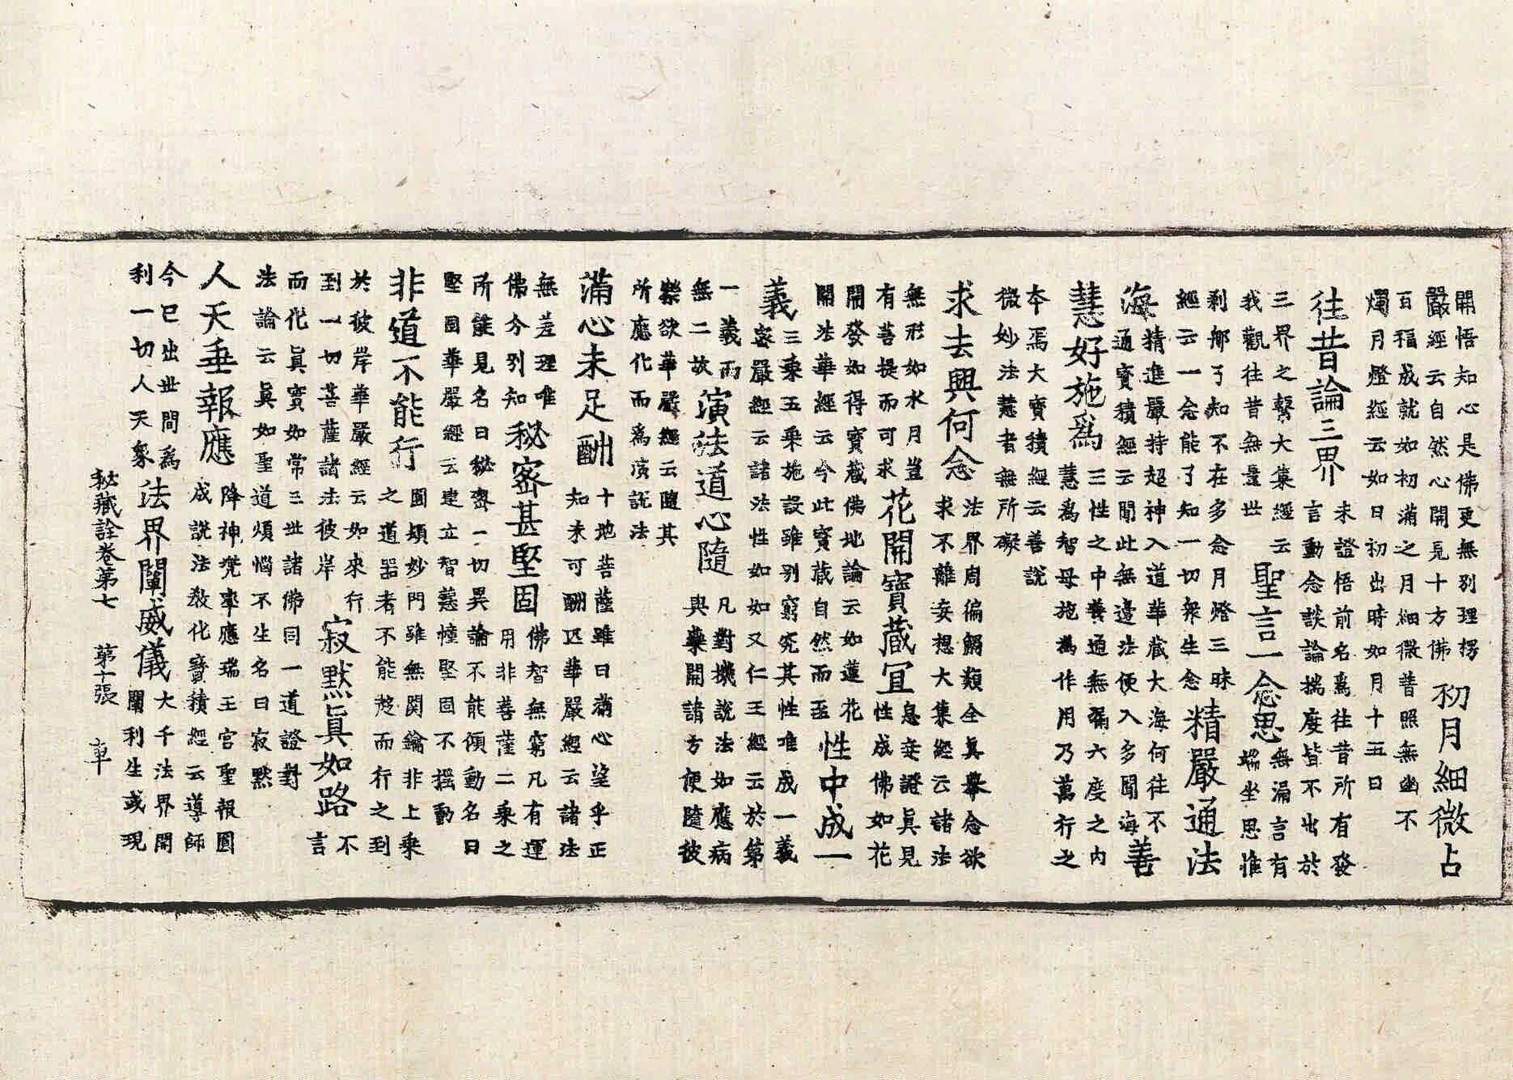 開悟知心是佛更無別理楞
嚴經云自然心開見十方佛
初月細微占
百福成就如初滿之月細微普照無幽不
燭月燈經云如日初出時如月十五日
往昔論三界
未證悟前名爲往昔所有發
言動念談論揣度皆不出於
三界之繫大集經云
我觀往昔無量世
聖言一念思
無漏言有
端坐思惟
刹那了知不在多念月燈三昧
經云一念能了知一切衆生念
精嚴通法
海
精進嚴持超神入道華嚴大海何往不
通寶積經云聞此無邊法便入多聞海
善
慧好施爲
三性之中善通無漏六度之內
慧爲智母施爲作用乃萬行之
本焉大寶積經云善說
微妙法慧者無所礙
求去興何念
法界周徧觸類全眞舉念欲
求不離妄想大集經云諸法
無形如水月豈
有菩提而可求
花開寶藏宜
息妄證眞見
性成佛如花
開發如得寶藏佛地論云如蓮花
開法華經云今此寶藏自然而至
性中成一
義
三乘五乘施設雖別窮究其性唯成一義
密嚴經云諸法性如如又仁王經云於第
一義而
無二故
演法道心隨
凡對機說法如應病
與藥開諸方便隨彼
樂欲華嚴經云隨其
所應化而爲演說法
滿心未足酬
十地菩薩雖曰滿心望乎正
知未可酬匹華嚴經云諸法
無差理唯
佛分別知
秘密甚堅固
佛智無窮凡有運
用非菩薩二乘之
所能見名曰秘密一切異論不能傾動名曰
堅固華嚴經云建立智慧幢堅固不搖動
非道不能行
圓頓妙門雖無関鑰非上乘
之道器者不能造而行之到
於彼岸華嚴經云如來行
到一切菩薩諸法彼岸
寂默眞如路
不
言
而化眞實如常三世諸佛同一道證對
法論云眞如聖道煩惱不生名曰寂默
人天垂報應
降神兜率應瑞王宮聖報圓
成說法教化寶積經云導師
今已出世間爲
利一切人天衆
法界闡威儀
大千法界開
闡利生或現
秘藏詮卷第七 第十張 章